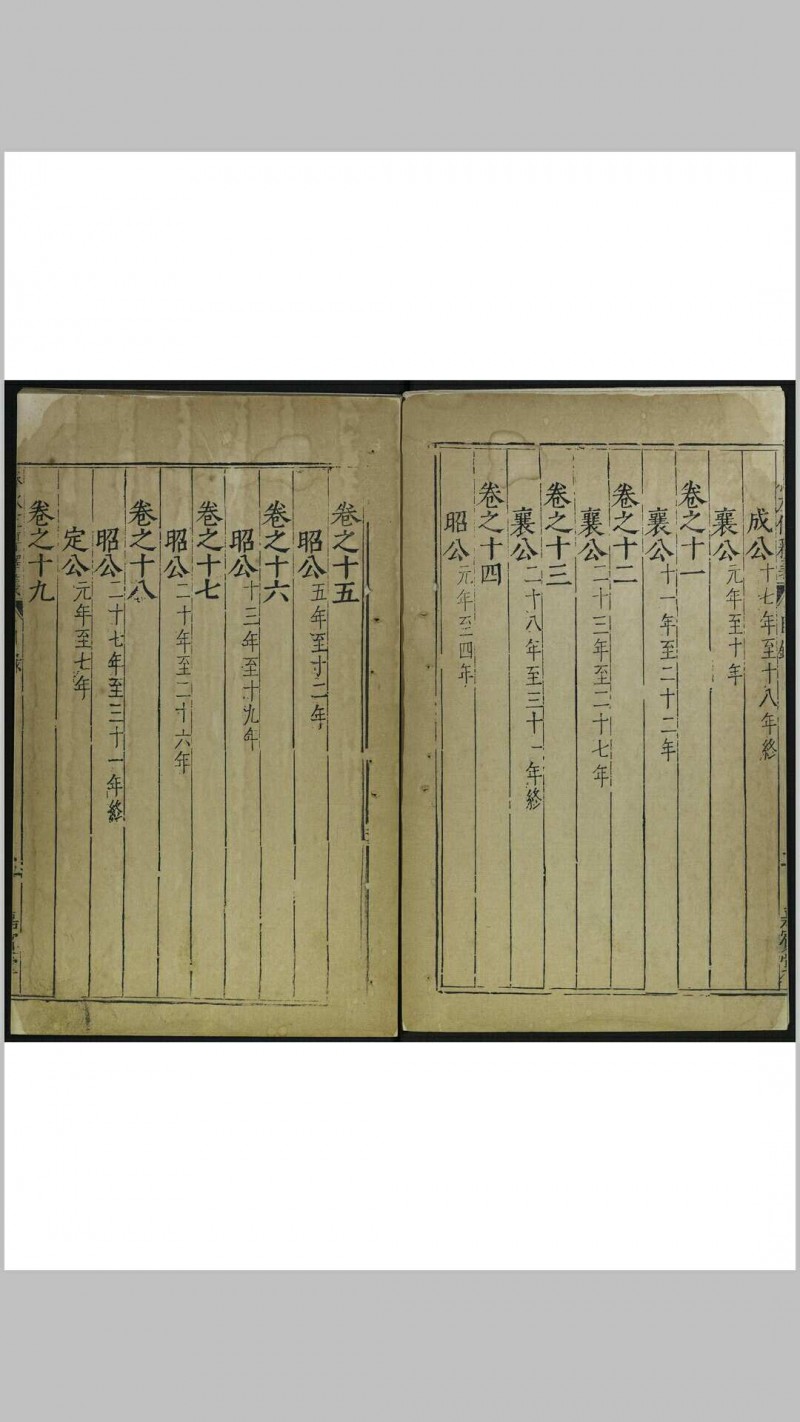 成公十七年至十八年終
襄公元年至十年
卷之十一
襄公十一年至二十二年
卷之十二
襄公二十三年至二十七年
卷之十三
襄公二十八年至三十一年終
卷之十四
昭公元年至四年
卷之十五
昭公五年至十二年
卷之十六
昭公十三年至十九年
卷之十七
昭公二十年至二十六年
卷之十八
昭公二十七年至三十一年終
定公元年至七年
卷之十九